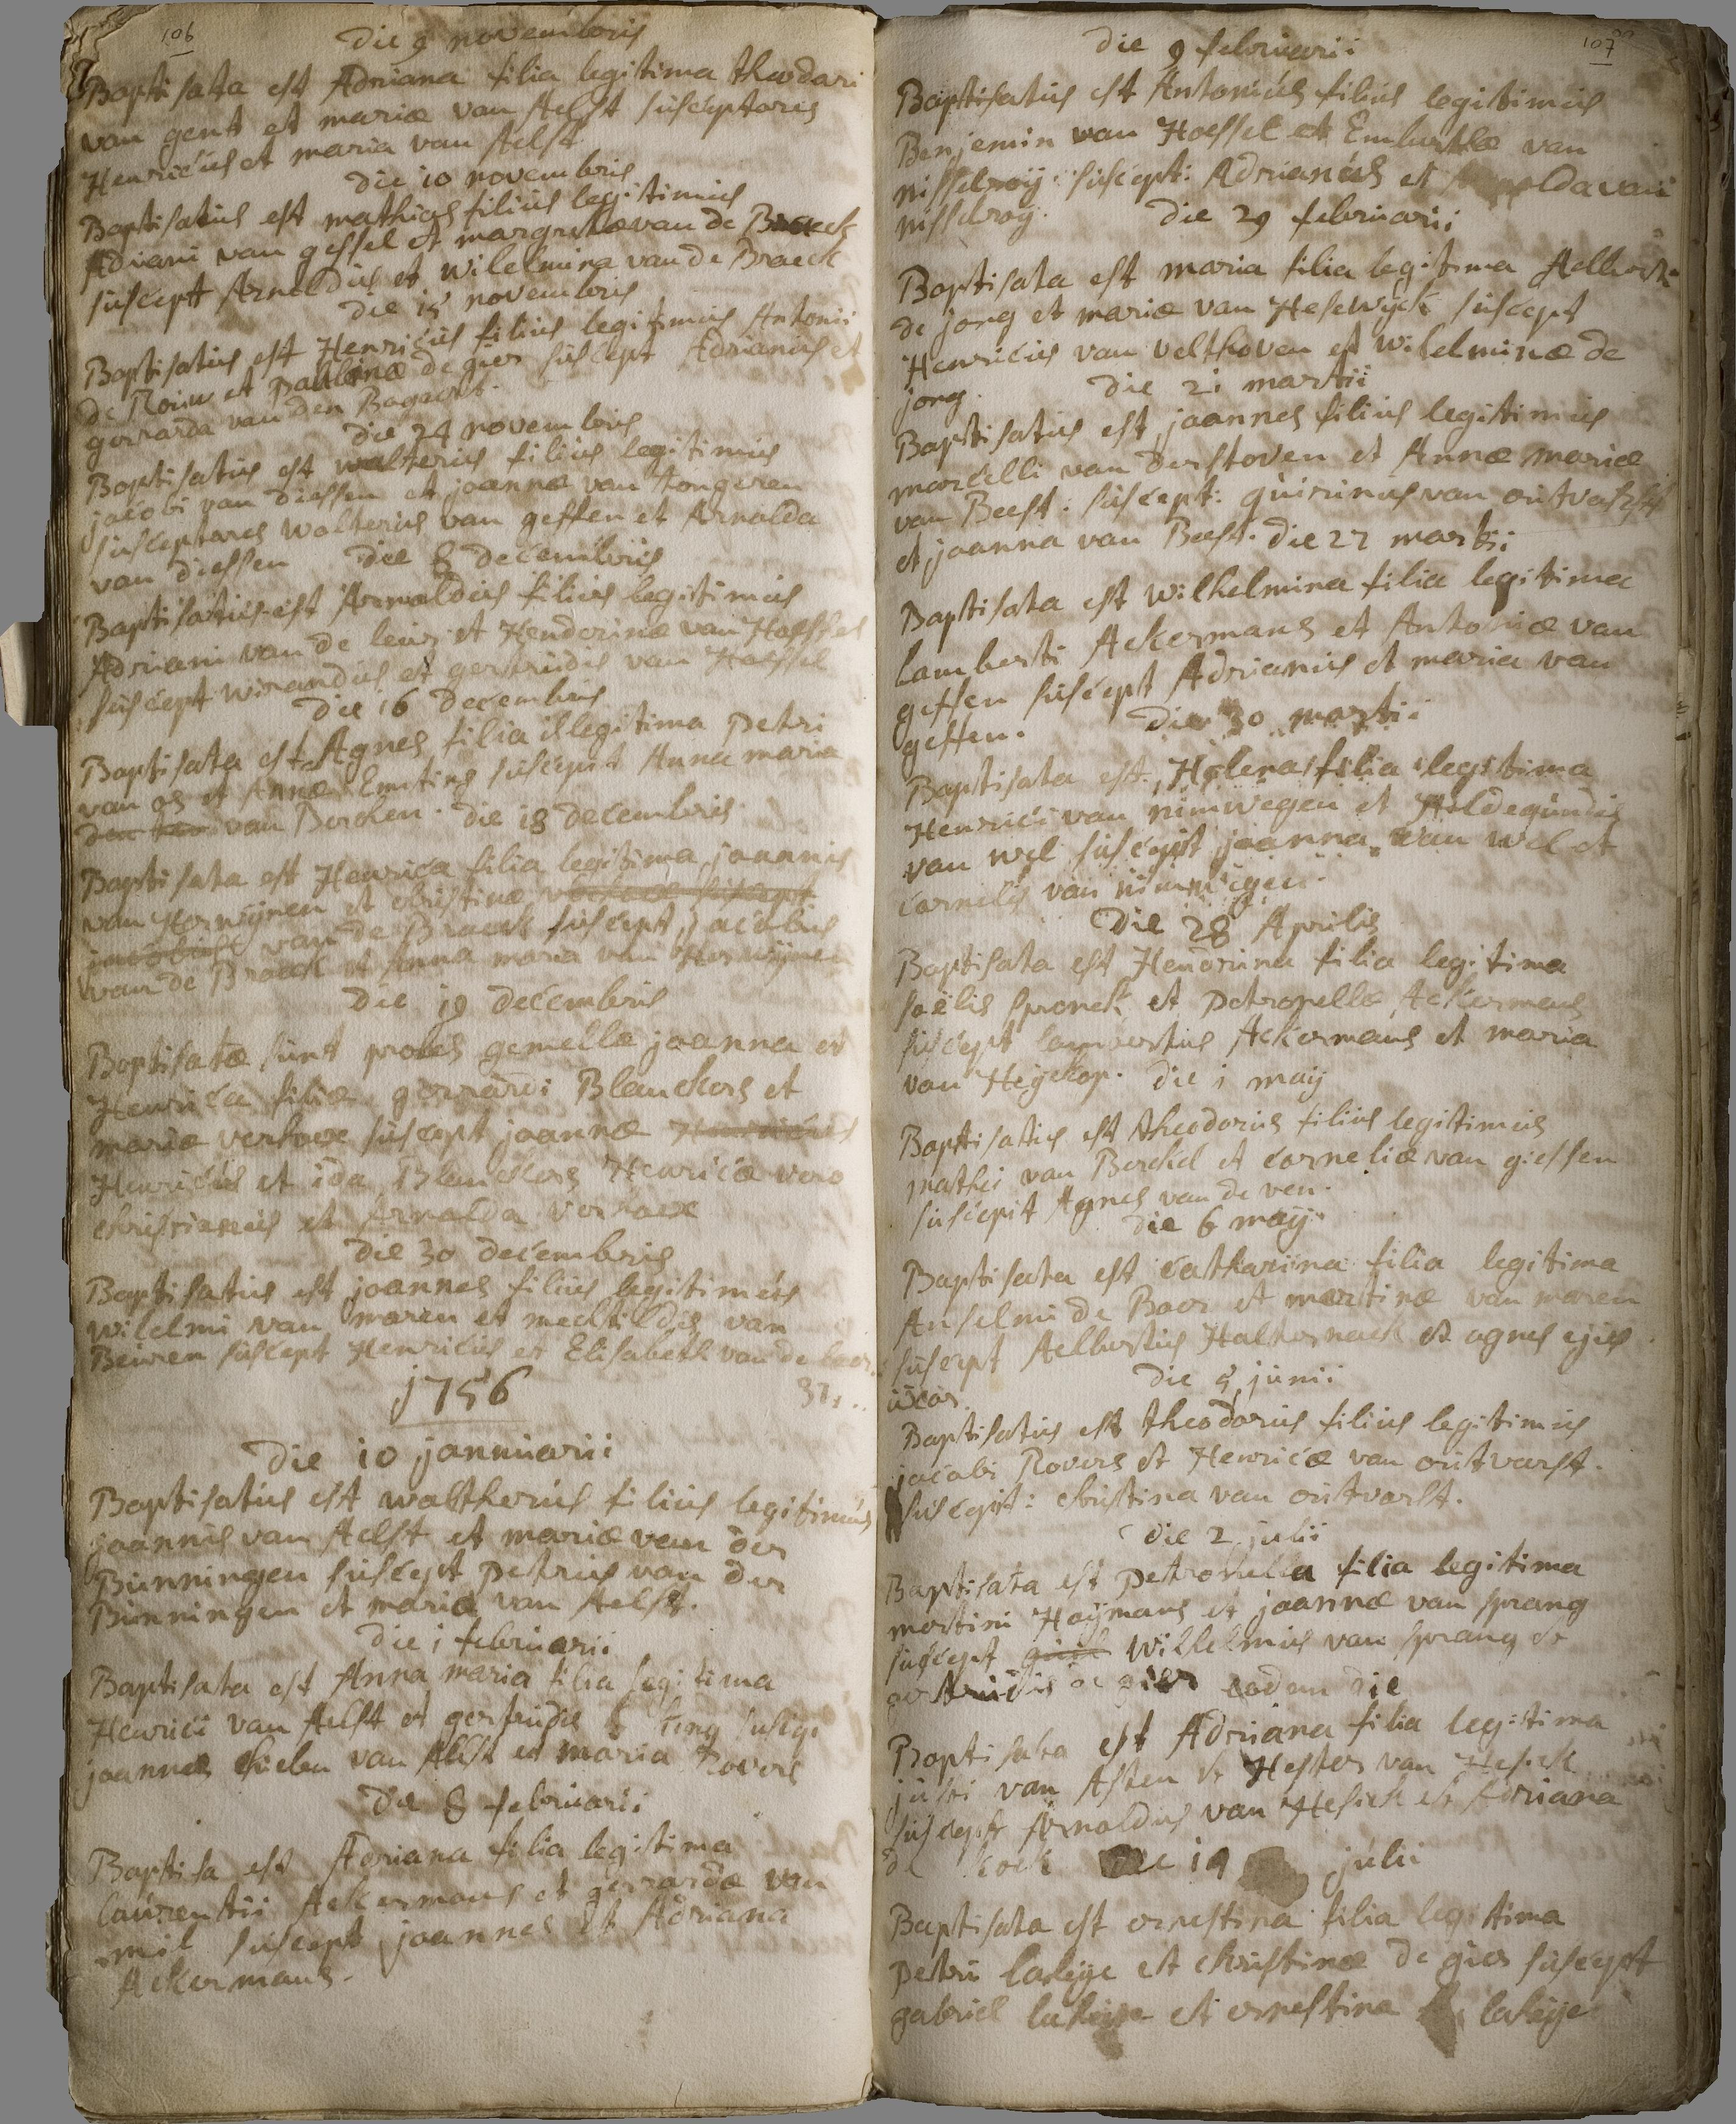 106
die 9 novembris
Baptisata est Adriana filia legitima theodori
van gent et mariæ van Aelst susceptores
Henricus et maria van Aelst
die 10 novembris
Baptisatus est mathias filius legitimus
Adriani van gessel et margretæ van de Braeck
suscept Arnoldus et wilelmina van de Braeck
die 15 novembris
Baptisatus est Henricus filius legitimus Antonii
de Rouw et paulinæ de gier suscept Adrianus et
gerrarda van den Bogaert.
die 24 novembris
Baptisatus est walterus filius legitimus
jacobi van diessen et joannæ van tongeren
susceptores walterus van geffen et Arnolda
van diessen die 8 decembris
Baptisatus est Arnoldus filius legitimus
Adriani van de leur et Henderinæ van Hoessel
suscept wirandus et gertrudis van Hoessel
die 16 decembris
Baptisata est Agnes filia illegitima petri
van os et Annæ Emting suscepit Anna maria
van Berchen. die 18 decembris
Baptisata est Henrica filia legitima joannis
van Herwijnen et christinæ suscept
jacobus van de Braeck suscept jacobus
van de Braeck et Anna maria van Herwijnen
die 19 decembris
Baptisatæ sunt proles gemellæ joanna et
Henrica filiæ gerrardi Blanckers et
mariæ verhoex suscept joannæ Henricus
Henricus et ida Blanckers Henricæ vero
christianus et Arnolda verhoex
die 30 decembris
Baptisatus est joannes filius legitimus
wilelmi van maren et mechtildis van
Beuren suscept Henricus et Elisabeth van de
1756
die 10 jannuarii
Baptisatus est waltherus filius legitimus
joannis van Aelst et mariæ van der
Bunningen suscept petrus van der
Bunningen et maria van Aelst.
die 1 februarii
Baptisata est Anna maria filia legitima
Henrici van Aelst et gertrudis
joannes van Aelst et maria Rovers
die 8 februarii
Baptisa est Adriana filia legitima
laurentii Ackermans et gerrardæ van
mil suscept joannes et Adriana
Ackermans.
107
die 9 februarii
Baptisatus est Antonius filius legitimus
Benjemin van Hoessel et Embertæ van
nisselroij: suscept: Adrianus et van
nisselroij. die 29 februarii
Baptisata est maria filia legitima Aelberti
de jong et mariæ van Hesewijck suscept
Henricus van velthoven et wilelminæ de
jong. die 21 martii
Baptisatus est joannes filius legitimus
marcelli van derstoven et Annæ mariæ
van Beest. suscept: quirinus van outvorst
et joanna van Beest. die 27 martii
Baptisata est wilhelmina filia legitima
lamberti Ackermans et Antoniæ van
geffen suscept Adrianus et maria van
geffen. die 30 martii
Baptisata est Helena filia legitima
Henrici van nimwegen et Hildegundis
van wel suscept joanna van wel et
cornelis van nimwegen.
die 28 Aprilis
Baptisata est Hendrina filia legitima
joëlis spronck et petronellæ Ackermans
suscept lambertus Ackermans et maria
van Heyckop. die 1 maij
Baptisatus est theodorus filius legitimus
mathei van Berckel et corneliæ van giessen
suscepit Agnes van de ven.
die 6 maij
Baptisata est catharina filia legitima
Anselmi de Boer et martinæ van maren
suscept Aelbertus Halternack et agnes ejus
uxor. die 5 junii
Baptisatus est theodorus filius legitimus
jacobi Rovers et Henricæ van outvorst.
suscepit: christina van outvorst.
die 2 julii
Baptisata est petronella filia legitima
martini Haijmans et joannæ van sprang
suscept wilhelmus van sprang et
gertrudis de gier eodem die
Baptisata est Adriana filia legitima
justi van Asten et Hester van Hesick
suscept Arnoldus van Hesick et Adriana
de kock die 19 julii
Baptisata est ernestina filia legitima
petri lakeije et christinæ de gier suscept
gabriel lakeije et ernestina lakeije